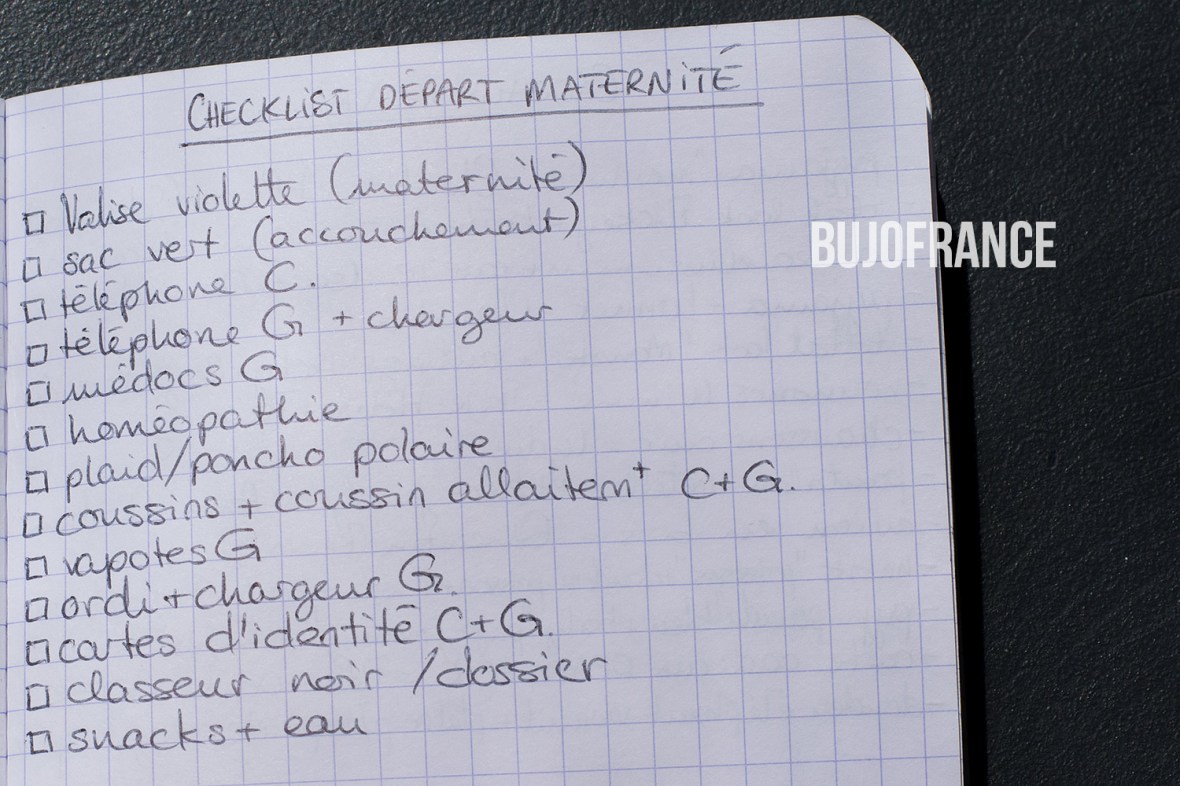 CHECKLIST DÉPART MATERNITÉ
□ Valise violette (maternité)
□ sac vert (accouchement)
□ téléphone C.
□ téléphone G + chargeur
□ médocs G
□ homéopathie
□ plaid/poncho polaire
□ coussins + coussin allaitemt C+G.
□ vapotes G
□ ordi + chargeur G.
□ cartes d'identité C+G.
□ classeur noir / dossier
□ snacks + eau
BUJOFRANCE